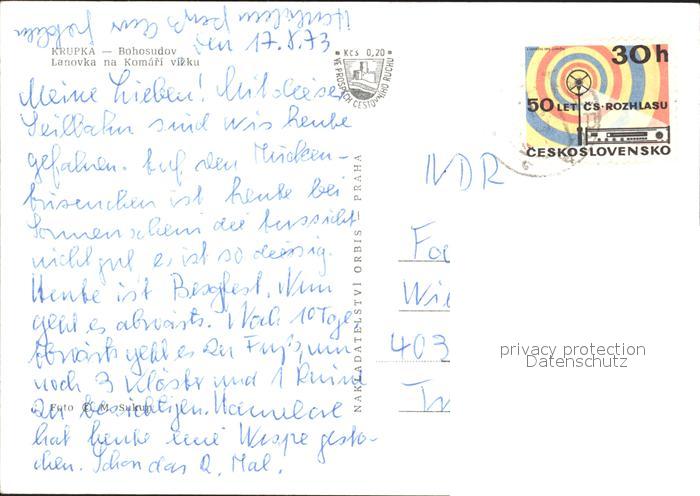 den 17.X.73
KRUPKA — Bohosudov
Lanovka na Komáří vížku
KČS 0,20
VE PROSPĚCH CESTOVNÍHO RUCHU
30h
50 LET ČS. ROZHLASU
ČESKOSLOVENSKO
Meine Lieben! Mit dieser
Seilbahn sind wir heute
gefahren. Auf den Mücken-
türmchen ist heute bei
Sonnenschein die Aussicht
nicht gut es ist so diesig.
Heute ist Bergfest. Nun
geht es abwärts. Noch 10 Tage
abwärts geht es zu Fuß, um
noch 3 Klöster und 1 Ruine
zu besichtigen. Hannelore
hat heute eine Wespe gesto-
chen. Schon das 2. Mal.
Foto
NAKLADATELSTVÍ ORBIS PRAHA
403
privacy protection
Datenschutz